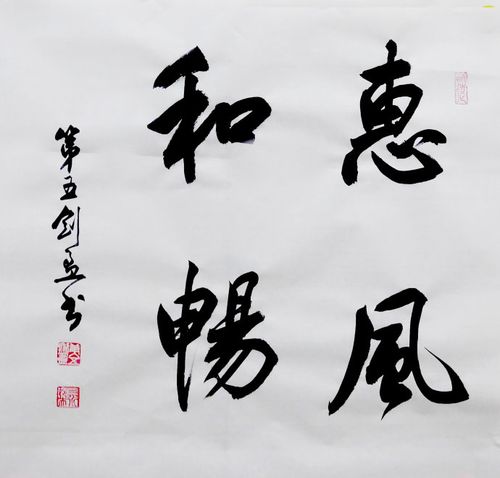 惠風
和暢
第五剑盈书